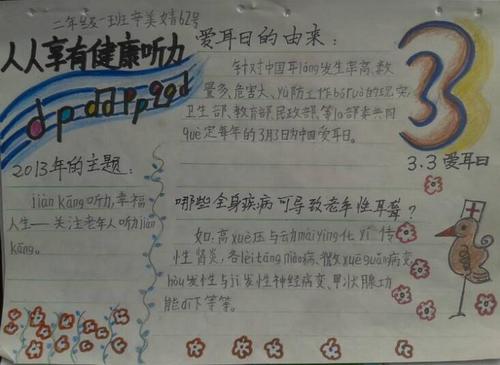 二年级一班辛美婧62号
人人享有健康听力
爱耳日的由来：
针对中国耳lóng发生率高、数
量多、危害大、yù防工作bóruò的现实，
卫生部、教育部、民政部、等10部委共同
què定每年的3月3日为中国爱耳日。
3
3.3 爱耳日
2013年的主题：
jiàn kāng听力，幸福
人生——关注老年人听力jiàn
kāng。
哪些全身疾病可导致老年性耳聋？
如：高xuè压与动mài yìng化
性肾炎，各lèi táng niào病、xuè guǎn病变
hòu发性与jì发性神经病变、甲状腺功
能dī下等等。